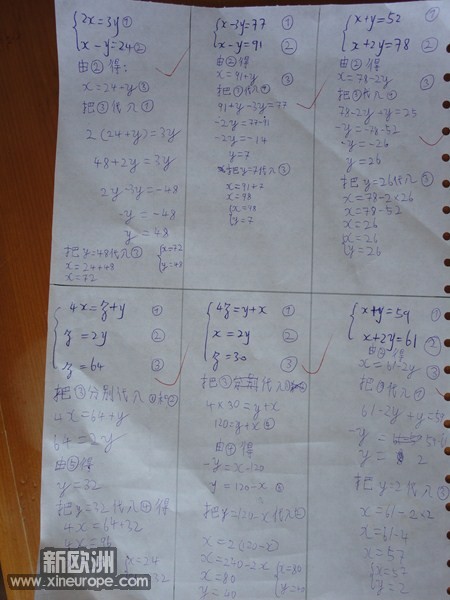 2x=3y ①
x-y=24 ②
由②得:
x=24-y ③
把③代入①
2(24+y)=3y
48+2y=3y
2y-3y=-48
-y=-48
y=48
把y=48代入③
x=24+48
x=72
x=72
y=48
x-3y=77 ①
x-y=91 ②
由②得
x=91+y ③
把③代入①
91+y-3y=77
-2y=77-91
-2y=-14
y=7
把y=7代入③
x=91+7
x=98
x=98
y=7
x+y=52 ①
x+2y=78 ②
由②得
x=78-2y ③
把③代入①
78-2y+y=25
-y=-78-52
-y=-26
y=26
把y=26代入③
x=78-2×26
x=78-52
x=26
x=26
y=26
4x=z+y ①
z=2y ②
z=64 ③
把③分别代入①和②
4x=64+y
64=2y
由⑤得
y=32
把y=32代入④得
4x=64+32
4x=96
x=24
4z=y+x ①
x=2y ②
z=30 ③
把③代入①
4×30=y+x
120=y+x ④
由④得
-y=x-120
y=120-x ⑤
把y=120-x代入②
x=2(120-x)
x=240-2x
x=80
y=40
x=80
y=40
x+y=59 ①
x+2y=61 ②
由②得
x=61-2y ③
把③代入①
61-2y+y=59
-y=
y=2
把y=2代入③
x=61-2×2
x=61-4
x=57
x=57
y=2
新欧洲
www.xineurope.com